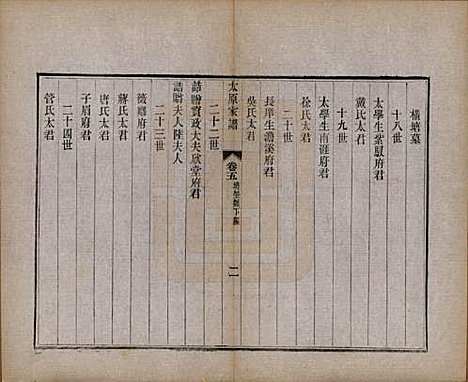 橫塘墓
十八世
太學生紫馭府君
戴氏太君
十九世
太學生南涯府君
徐氏太君
二十世
長庠生澹溪府君
吳氏太君
太原家譜
卷五
下編
二
二十二世
誥贈資政大夫欣堂府君
誥贈夫人陸夫人
二十三世
薇廳府君
蔣氏太君
唐氏太君
子眉府君
二十四世
管氏太君